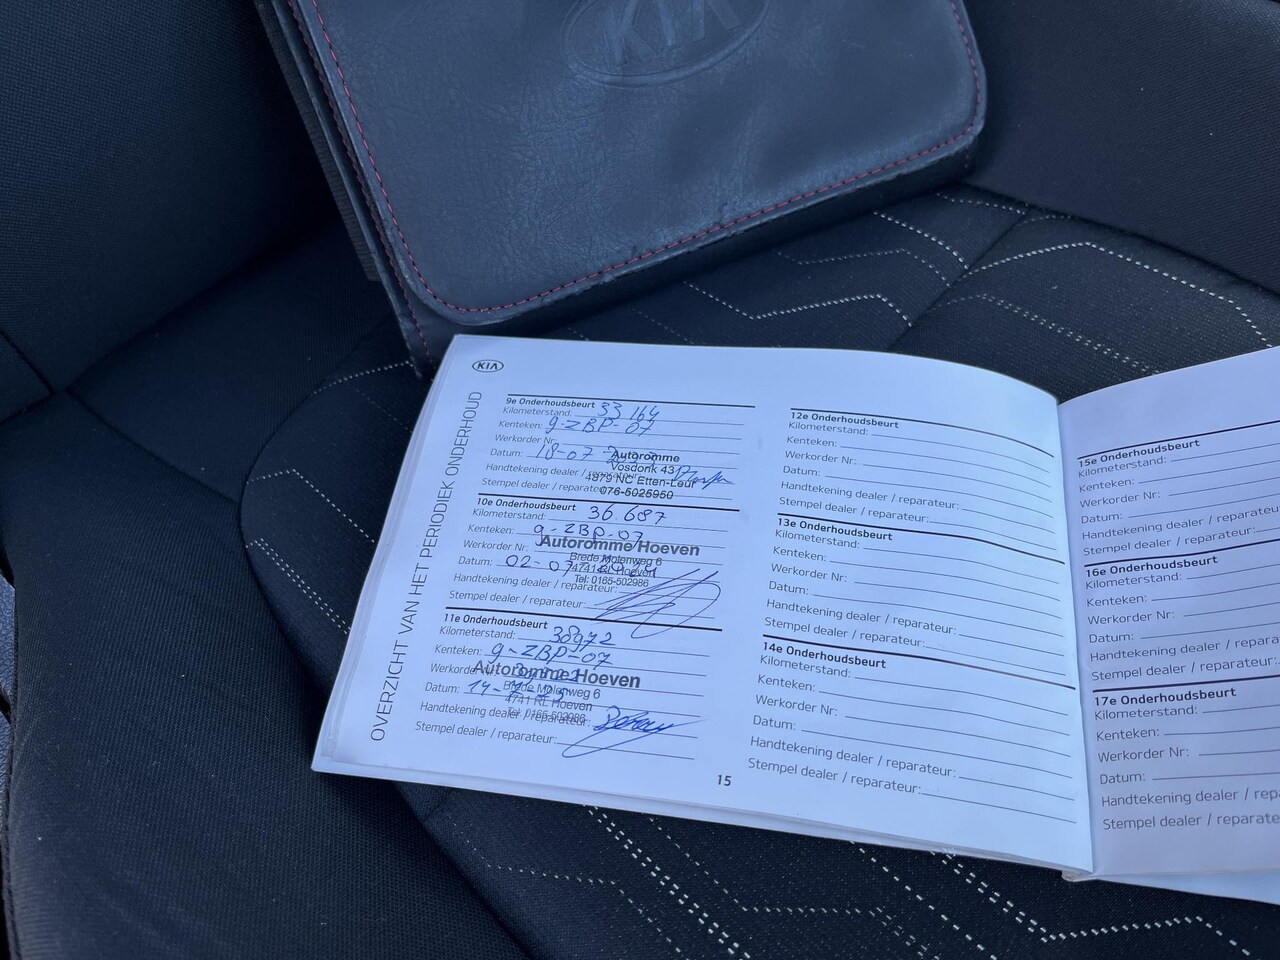 KIA
KIA
OVERZICHT VAN HET PERIODIEK ONDERHOUD
9e Onderhoudsbeurt
Kilometerstand: 33 164
Kenteken: g-ZBP-07
Werkorder Nr:
Datum: 18-07-
Autoromme
Vosdonk 43
Handtekening dealer / reparateur:
4879 NC Etten-Leur
Stempel dealer / reparateur:
076-5025950
10e Onderhoudsbeurt
Kilometerstand: 36.687
Kenteken: g-ZBP-07
Werkorder Nr:
Autoromme Hoeven
Brede Molenweg 6
Datum: 02-07-
4741 RL Hoeven
Tel: 0165-502986
Handtekening dealer / reparateur:
Stempel dealer / reparateur:
11e Onderhoudsbeurt
Kilometerstand: 38972
Kenteken: g-ZBP-07
Werkorder Nr:
Autoromme Hoeven
Datum: 14-
Brede Molenweg 6
4741 RL Hoeven
Handtekening dealer / reparateur:
Tel: 0165-502986
Stempel dealer / reparateur:
15
12e Onderhoudsbeurt
Kilometerstand:
Kenteken:
Werkorder Nr:
Datum:
Handtekening dealer / reparateur:
Stempel dealer / reparateur:
13e Onderhoudsbeurt
Kilometerstand:
Kenteken:
Werkorder Nr:
Datum:
Handtekening dealer / reparateur:
Stempel dealer / reparateur:
14e Onderhoudsbeurt
Kilometerstand:
Kenteken:
Werkorder Nr:
Datum:
Handtekening dealer / reparateur:
Stempel dealer / reparateur:
15e Onderhoudsbeurt
Kilometerstand:
Kenteken:
Werkorder Nr:
Datum:
Handtekening dealer / reparateu
Stempel dealer / reparateur:
16e Onderhoudsbeurt
Kilometerstand:
Kenteken:
Werkorder Nr:
Datum:
Handtekening dealer / reparate
Stempel dealer / reparateur:
17e Onderhoudsbeurt
Kilometerstand:
Kenteken:
Werkorder Nr:
Datum:
Handtekening dealer / repar
Stempel dealer / reparate